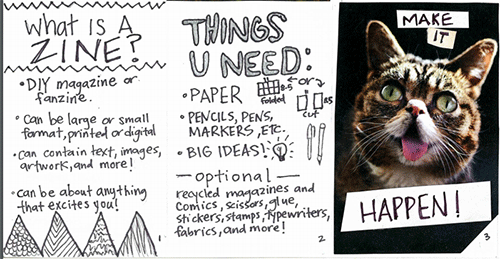 What is a
ZINE?
• DIY magazine or
fanzine.
• Can be large or small
format, printed or digital
• can contain text, images,
artwork, and more!
• can be about anything
that excites you!
1
THINGS
U NEED:
• PAPER
8.5
folded
or
8.5
cut
• PENCILS, PENS,
MARKERS, ETC.
• BIG IDEAS!
— optional —
recycled magazines and
Comics, scissors, glue,
stickers, stamps, typewriters,
fabrics, and more!
2
MAKE
IT
HAPPEN!
3